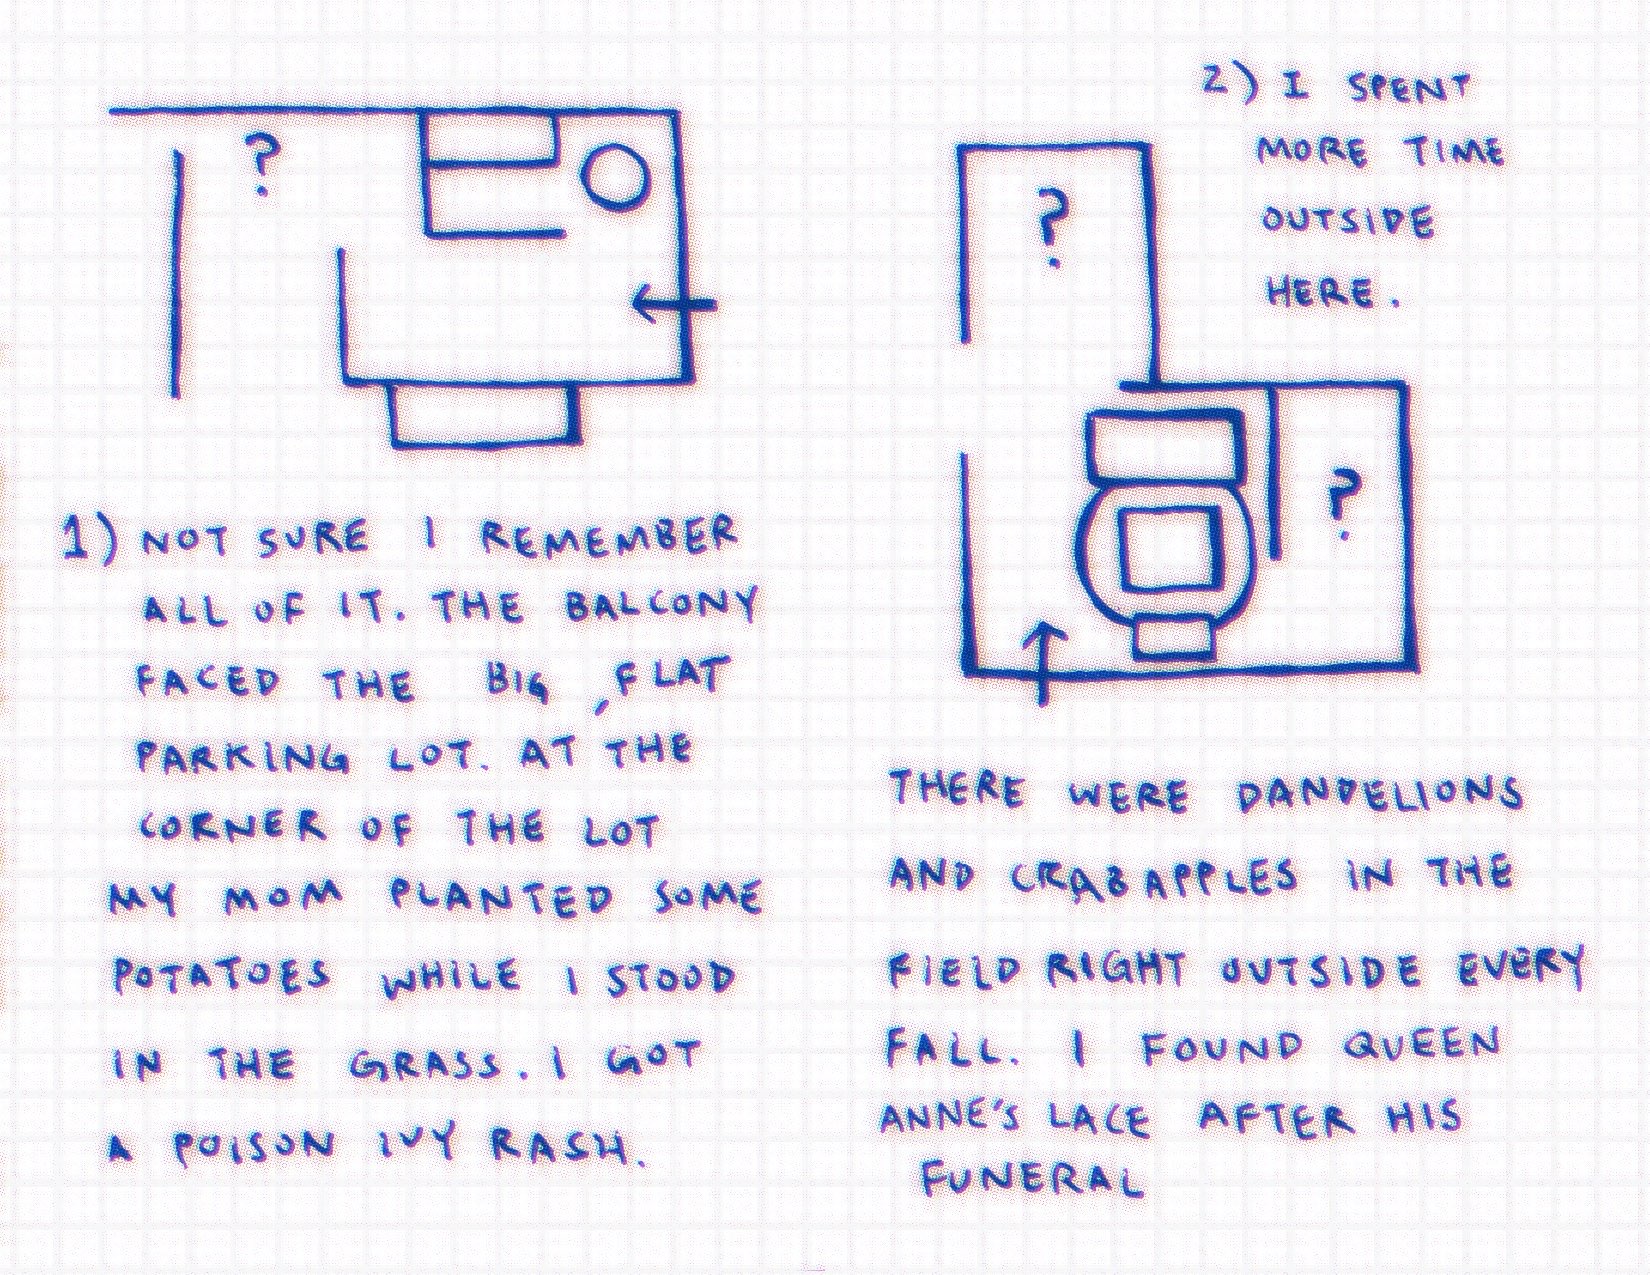 ?
1) NOT SURE I REMEMBER
ALL OF IT. THE BALCONY
FACED THE BIG, FLAT
PARKING LOT. AT THE
CORNER OF THE LOT
MY MOM PLANTED SOME
POTATOES WHILE I STOOD
IN THE GRASS. I GOT
A POISON IVY RASH.
2) I SPENT
MORE TIME
OUTSIDE
HERE.
?
?
THERE WERE DANDELIONS
AND CRABAPPLES IN THE
FIELD RIGHT OUTSIDE EVERY
FALL. I FOUND QUEEN
ANNE'S LACE AFTER HIS
FUNERAL